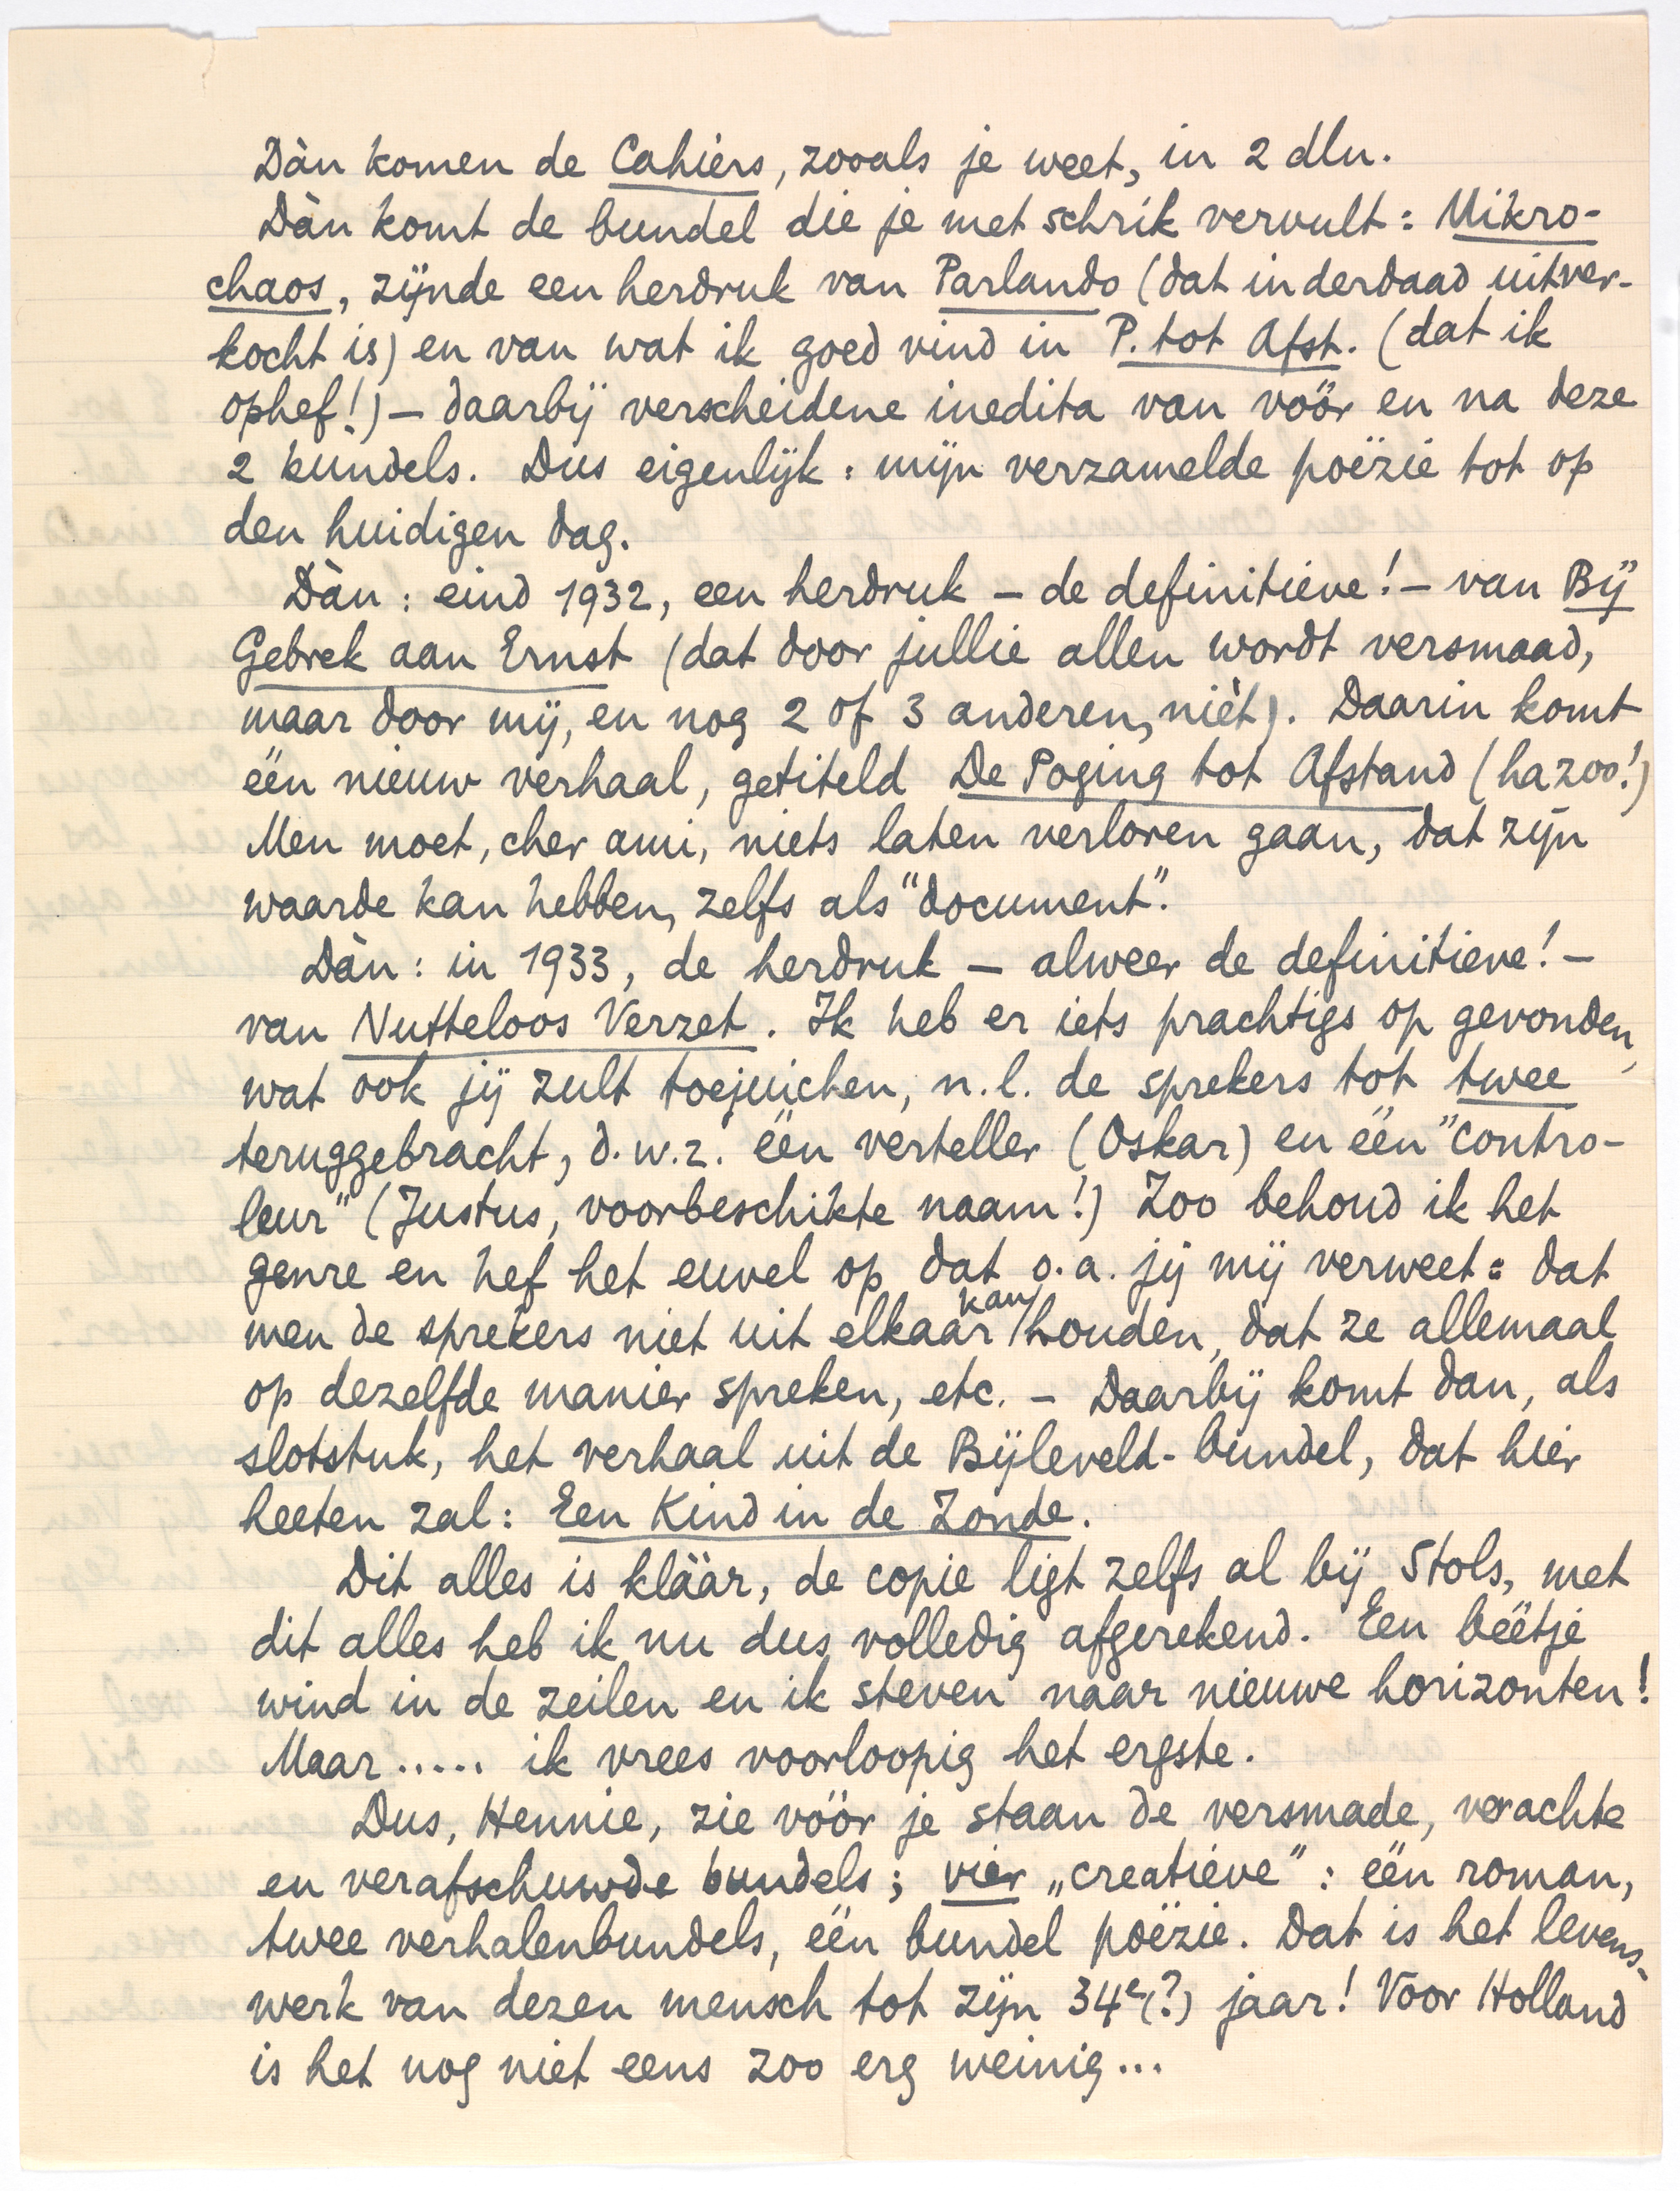 Dàn komen de Cahiers, zooals je weet, in 2 dln.
Dàn komt de bundel die je met schrik vervult: Mikro-
chaos, zijnde een herdruk van Parlando (dat inderdaad uitver-
kocht is) en van wat ik goed vind in P. tot Afst. (dat ik
ophef!) – daarbij verscheidene inedita van vóór en na deze
2 bundels. Dus eigenlijk: mijn verzamelde poëzie tot op
den huidigen dag.
Dàn: eind 1932, een herdruk – de definitieve! – van Bij
Gebrek aan Ernst (dat door jullie allen wordt versmaad,
maar door mij, en nog 2 of 3 anderen, nièt). Daarin komt
één nieuw verhaal, getiteld De Poging tot Afstand (ha zoo!)
Men moet, cher ami, niets laten verloren gaan, dat zijn
waarde kan hebben, zelfs als "document".
Dàn: in 1933, de herdruk – alweer de definitieve! –
van Nutteloos Verzet. Ik heb er iets prachtigs op gevonden,
wat ook jij zult toejuichen, n.l. de sprekers tot twee
teruggebracht, d.w.z. één verteller (Oskar) en één "contro-
leur" (Justus, voorbeschikte naam!) Zoo behoud ik het
genre en hef het euvel op dat o.a. jij mij verweet: dat
men de sprekers niet uit elkaar kan houden, dat ze allemaal
op dezelfde manier spreken, etc. – Daarbij komt dan, als
slotstuk, het verhaal uit de Bijleveld-bundel, dat hier
heeten zal: Een Kind in de Zonde.
Dit alles is kláár, de copie ligt zelfs al bij Stols, met
dit alles heb ik nu dus volledig afgerekend. Een béétje
wind in de zeilen en ik steven naar nieuwe horizonten!
Maar..... ik vrees voorloopig het ergste.
Dus, Hennie, zie vóór je staan de versmade, verachte
en verafschuwde bundels; vier „creatieve": één roman,
twee verhalenbundels, één bundel poëzie. Dat is het levens-
werk van dezen mensch tot zijn 34e(?) jaar! Voor Holland
is het nog niet eens zoo erg weinig...